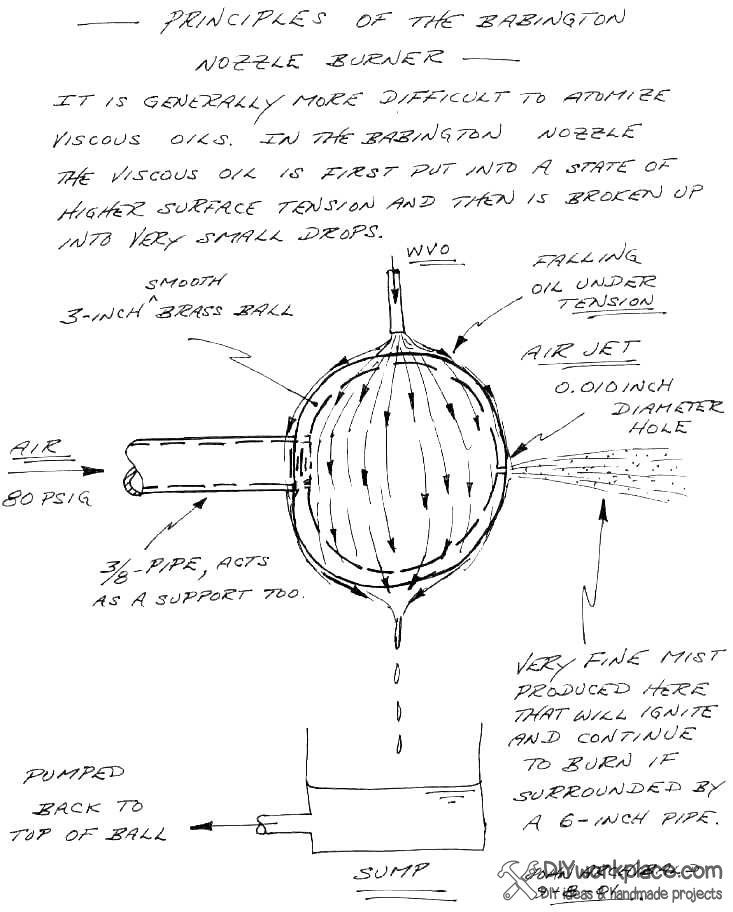 PRINCIPLES OF THE BABINGTON
NOZZLE BURNER
IT IS GENERALLY MORE DIFFICULT TO ATOMIZE
VISCOUS OILS. IN THE BABINGTON NOZZLE
THE VISCOUS OIL IS FIRST PUT INTO A STATE OF
HIGHER SURFACE TENSION AND THEN IS BROKEN UP
INTO VERY SMALL DROPS.
WVO
FALLING
OIL UNDER
TENSION
SMOOTH
3-INCH ^ BRASS BALL
AIR JET
0.010 INCH
DIAMETER
HOLE
AIR
80 PSIG
3/8-PIPE, ACTS
AS A SUPPORT TOO.
VERY FINE MIST
PRODUCED HERE
THAT WILL IGNITE
AND CONTINUE
TO BURN IF
SURROUNDED BY
A 6-INCH PIPE.
PUMPED
BACK TO
TOP OF BALL
SUMP
DIYworkplace.com
DIY ideas & handmade projects